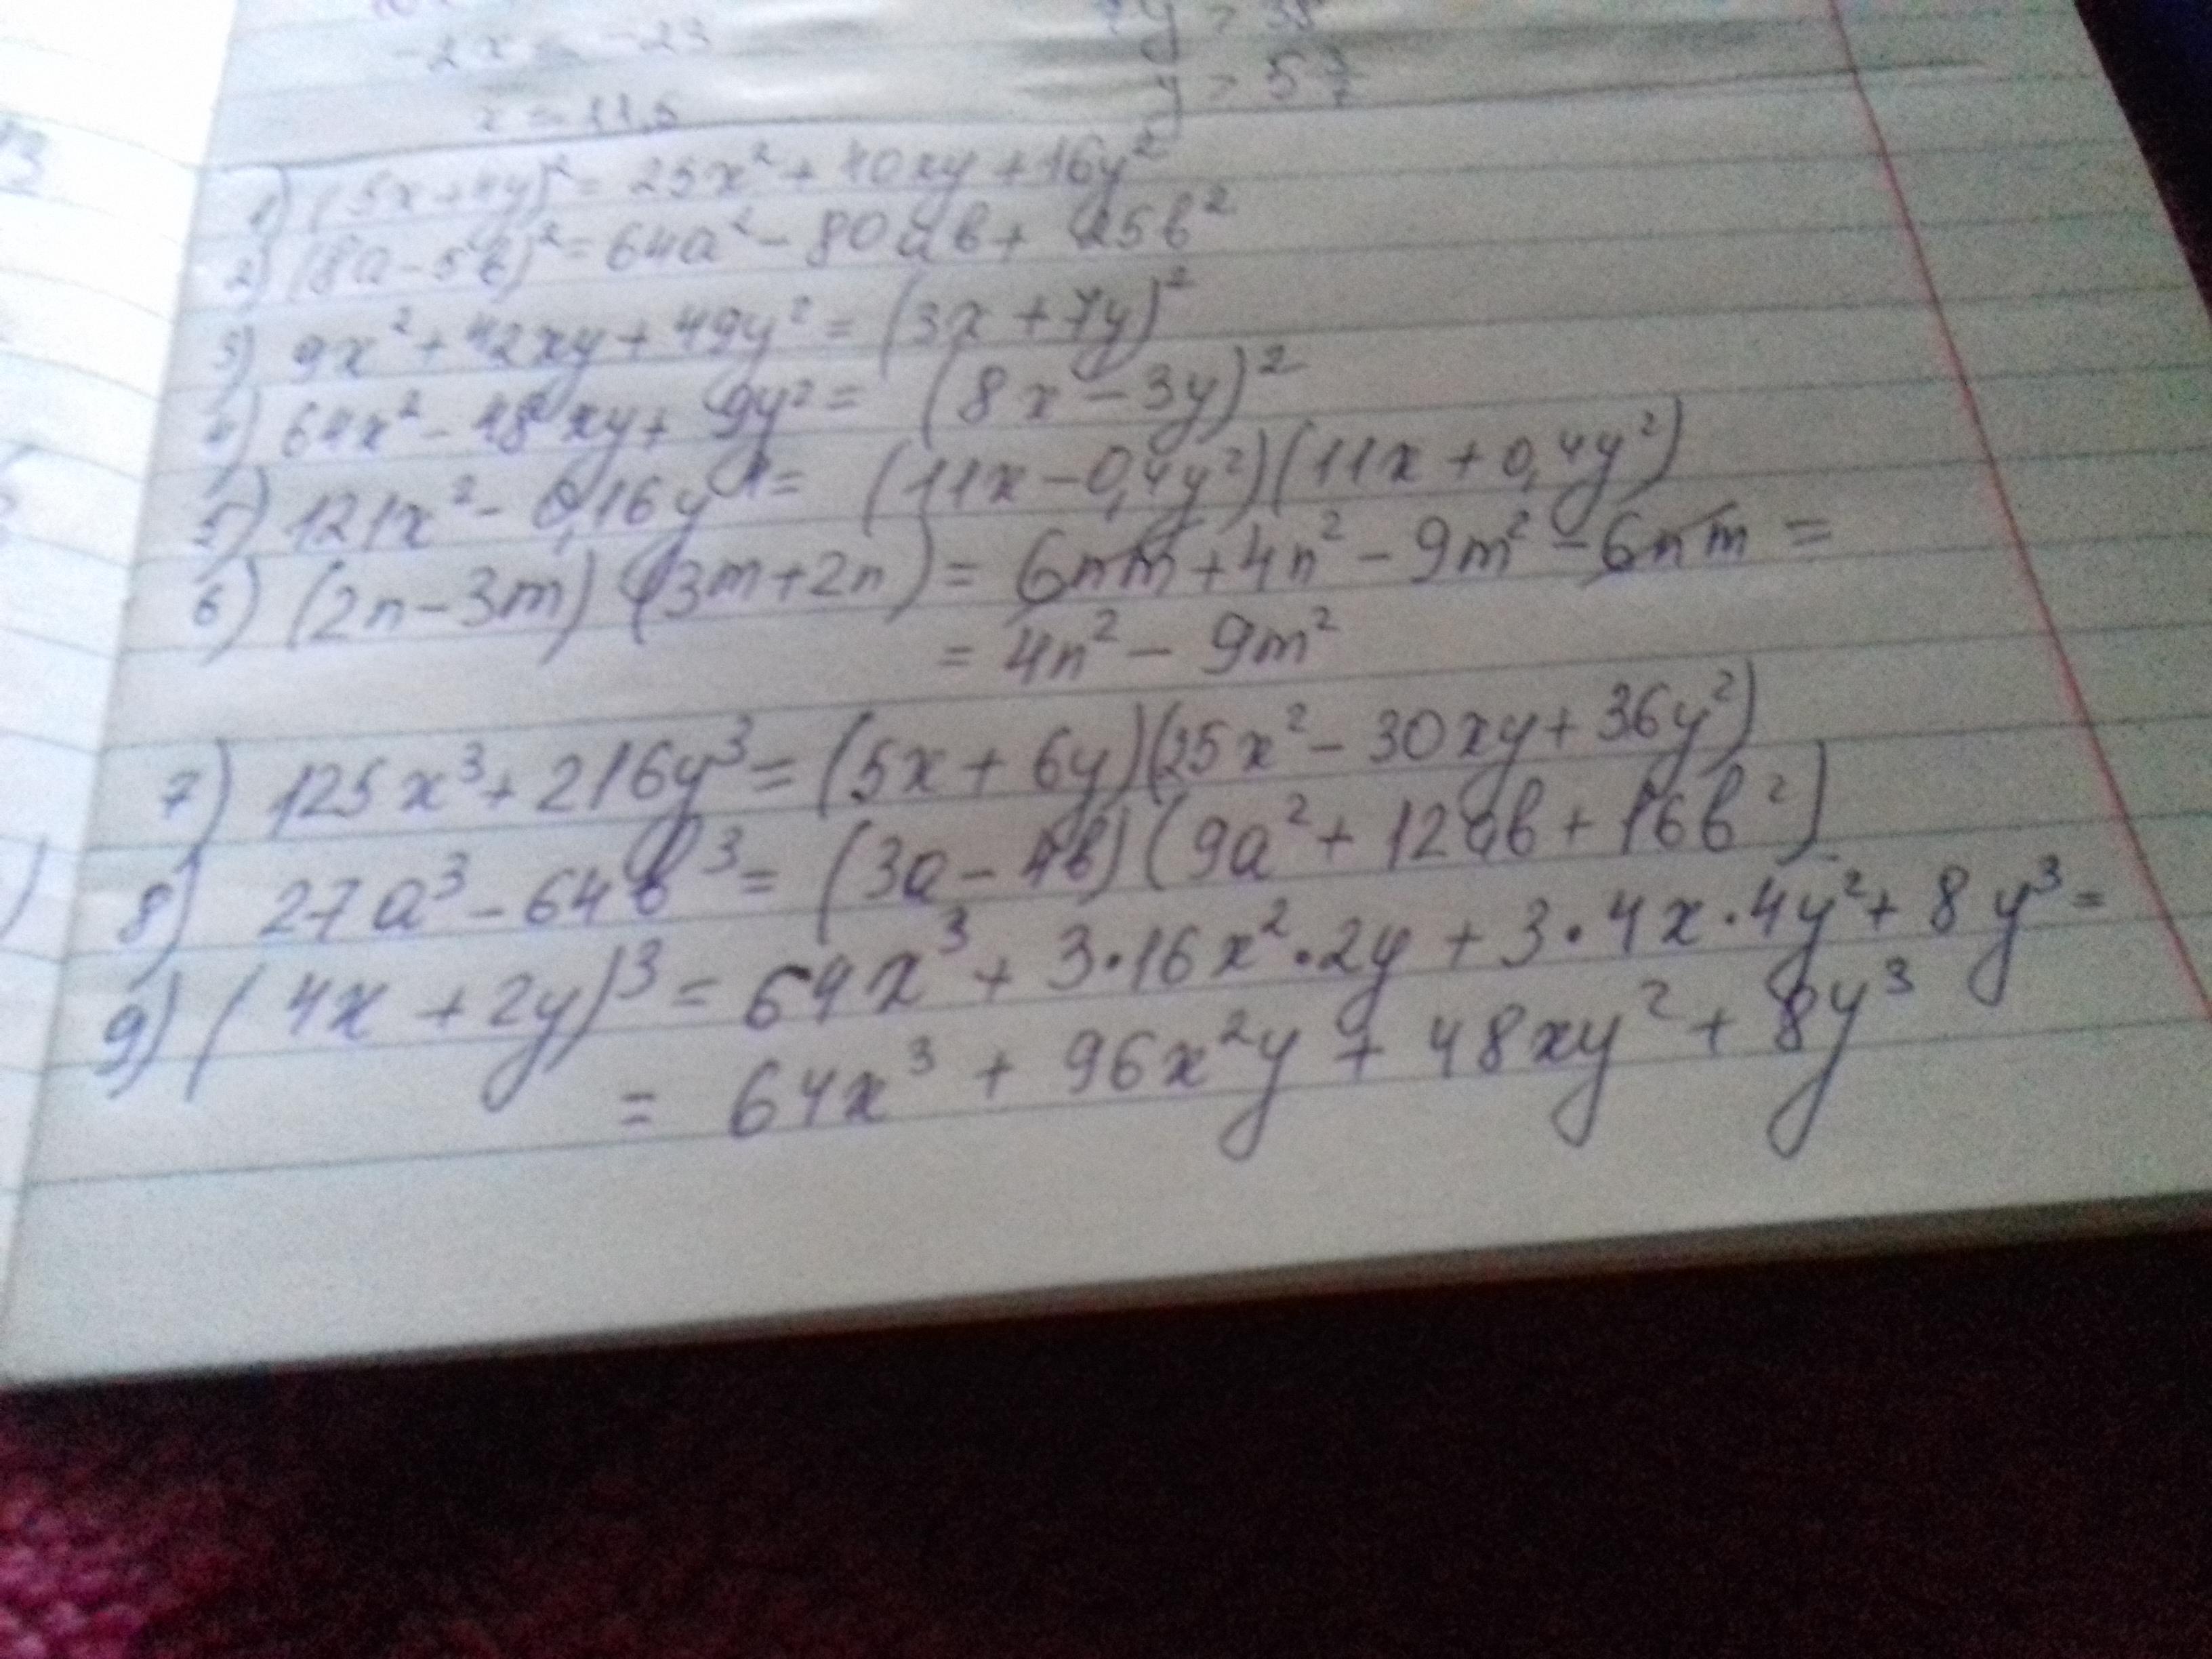 -2x = -23
x = 11,5
y > 5 3/7
1) (5x+4y)² = 25x² + 40xy + 16y²
2) (8a-5в)² = 64a² - 80aв + 25в²
3) 9x² + 42xy + 49y² = (3x + 7y)²
4) 64x² - 48xy + 9y² = (8x - 3y)²
5) 121x² - 0,16y⁴ = (11x - 0,4y²)(11x + 0,4y²)
6) (2n - 3m)(3m + 2n) = 6nm + 4n² - 9m² - 6nm =
= 4n² - 9m²
7) 125x³ + 216y³ = (5x + 6y)(25x² - 30xy + 36y²)
8) 27a³ - 64в³ = (3a - 4в)(9a² + 12aв + 16в²)
9) (4x + 2y)³ = 64x³ + 3·16x²·2y + 3·4x·4y² + 8y³ =
= 64x³ + 96x²y + 48xy² + 8y³